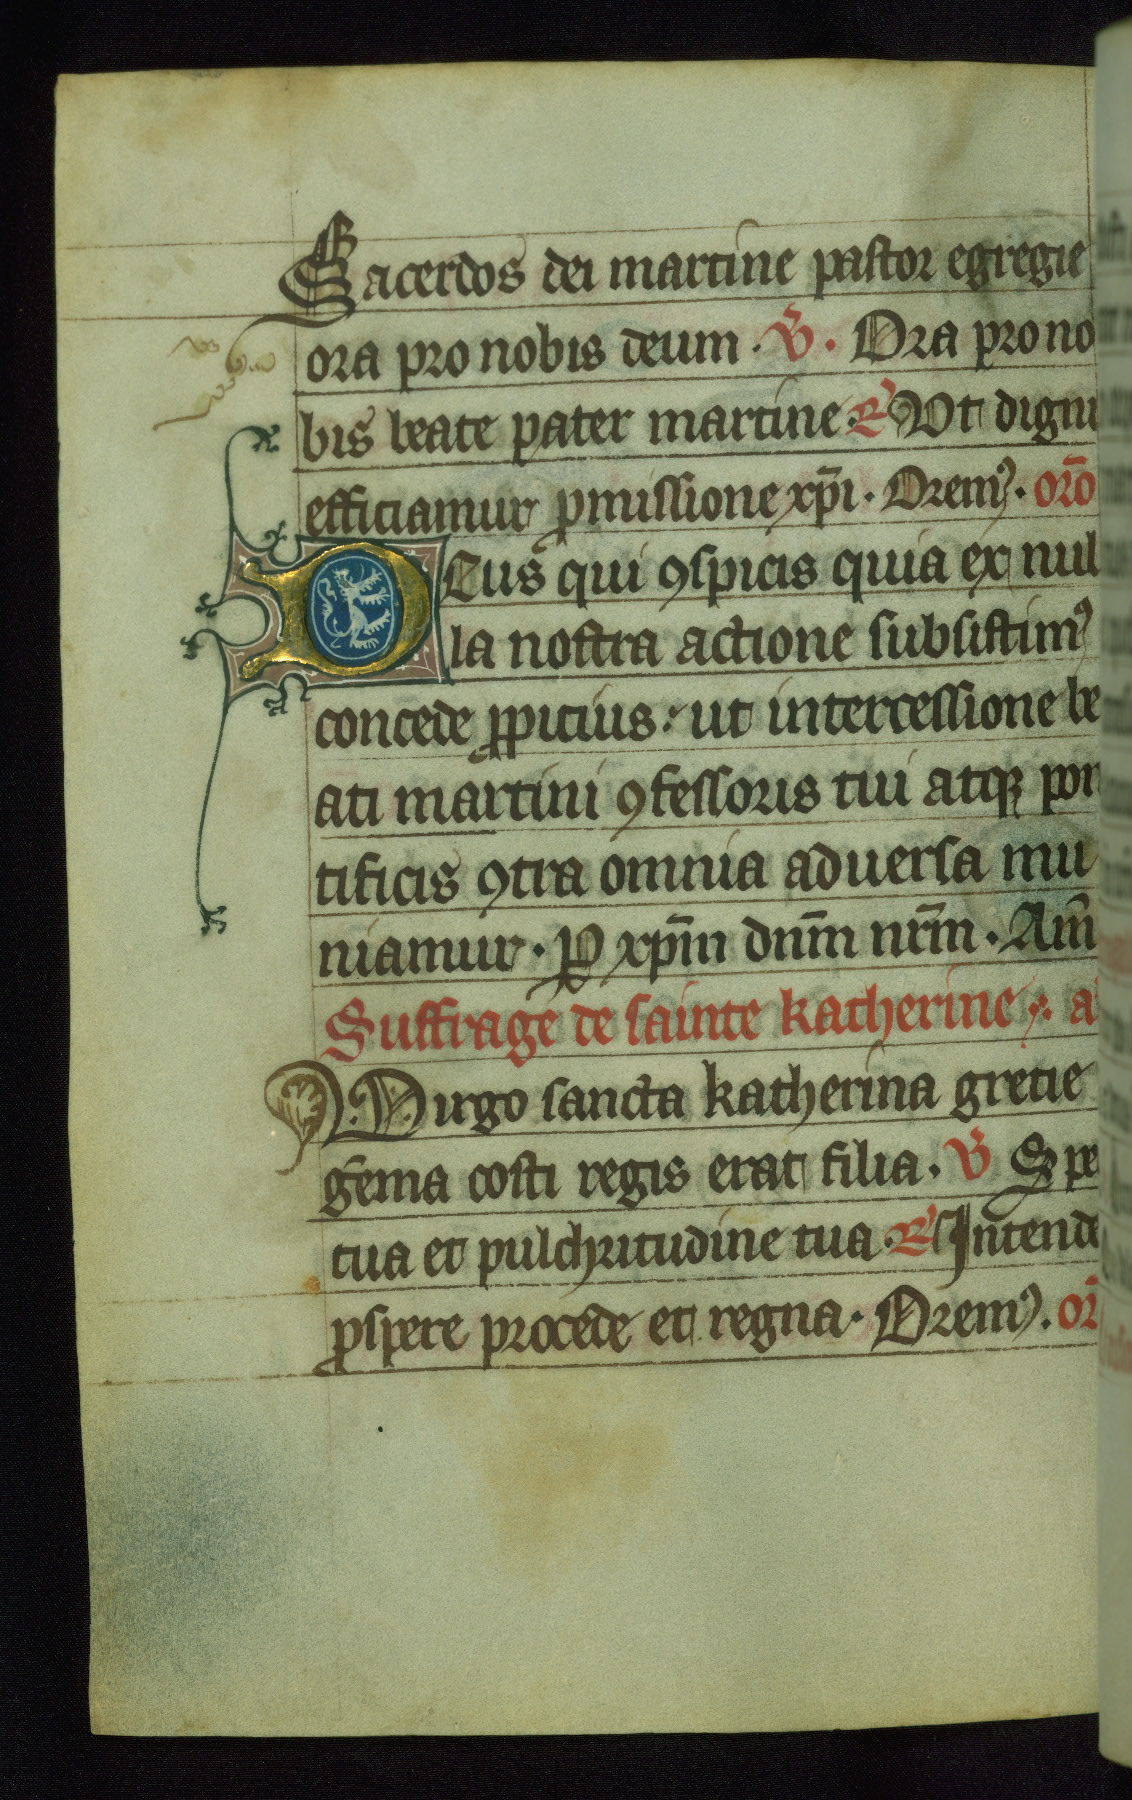 Sacerdos dei martine pastor egregie
ora pro nobis deum · V̄ · Ora pro no
bis beate pater martine · R̄ Ut digni
efficiamur ꝓmissione xp̄i · Oremꝰ · orō
Deus qui ꝯspicis quia ex nul
la nostra actione subsistimꝰ
concede ꝓpicius : ut intercessione be
ati martini ꝯfessoris tui atqꝫ pon
tificis ꝯtra omnia aduersa mu
niamur · P xp̄m dnm̄ nrm̄ · Am̄
Suffrage de sainte katherine · a
Virgo sancta katherina gretie
gēma costi regis erat filia · V̄ Spe
tua et pulchritudine tua · R̄ Intende
ꝓspere procede et regna · Oremꝰ · or̄